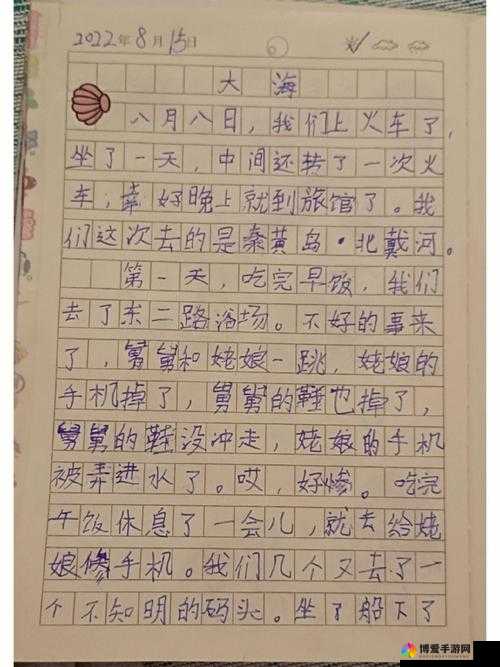 2022年8月15日
大海
八月八日，我们上火车了，
坐了一天，中间还转了一次火
车；幸好晚上就到旅馆了。我
们这次去的是秦黄岛·北戴河。
第一天，吃完早饭，我们
去了东二路浴场。不好的事来
了，舅舅和姥娘一跳，姥娘的
手机掉了，舅舅的鞋也掉了，
舅舅的鞋没冲走，姥娘的手机
被弄进水了。哎，好惨。吃完
午饭休息了一会儿，就去给姥
娘修手机。我们几个又去了一
个不知明的码头。坐了船下了
博爱手游网